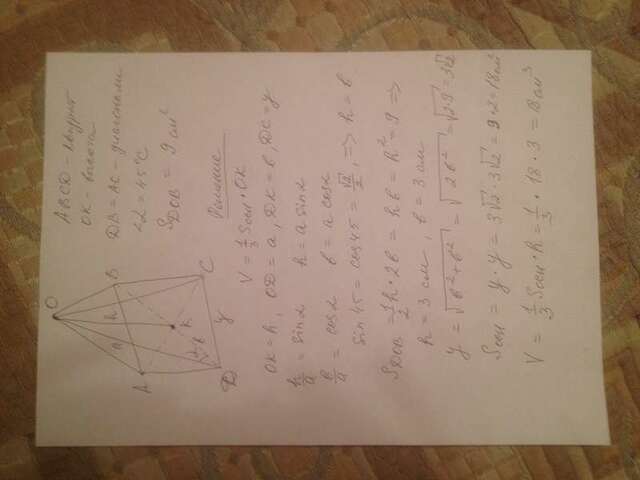 ABCD - квадрат
OK - высота
DB = AC - диагонали
∠α = 45°C
S DOB = 9 см²
Решение
V = 1/3 Sосн · OK
OK = h, OD = a, DK = b, DC = y
h/a = sinα h = a sinα
b/a = cosα b = a cosα
sin 45 = cos 45 = √2/2, => h = b
S DOB = 1/2 h · 2b = hb = h² = 9 =>
h = 3 см, b = 3 см
y = √b² + b² = √2b² = √2·9 = 3√2
Sосн = y · y = 3√2 · 3√2 = 9 · 2 = 18 см²
V = 1/3 Sосн · h = 1/3 · 18 · 3 = 18 см³
O
A
B
C
D
K
h
a
b
α
y